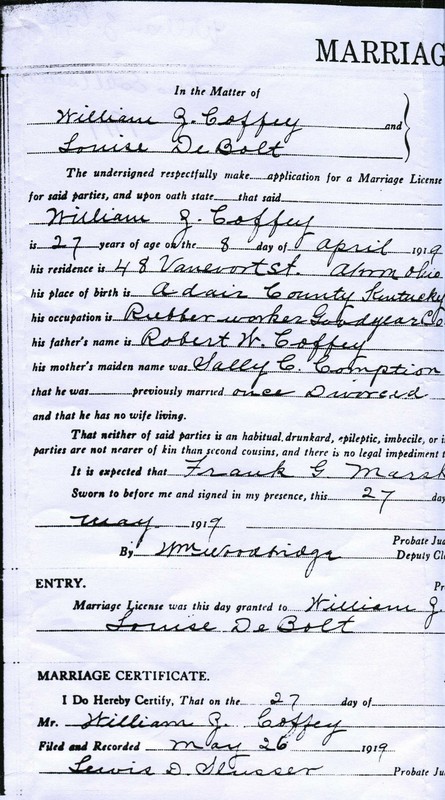 MARRIAG
In the Matter of
William Z. Coffey and
Louise De Bolt
The undersigned respectfully make application for a Marriage License
for said parties, and upon oath state that said
William Z. Coffey
is 27 years of age on the 8 day of April 1919
his residence is 48 St. Ohio
his place of birth is Adair County Kentucky
his occupation is Rubber worker Goodyear Co
his father's name is Robert W. Coffey
his mother's maiden name was Sally C. Comption
that he was previously married once Divorced
and that he has no wife living.
That neither of said parties is an habitual drunkard, epileptic, imbecile, or i
parties are not nearer of kin than second cousins, and there is no legal impediment t
It is expected that Frank G Marsh
Sworn to before me and signed in my presence, this 27 day
May 1919
Probate Ju
By Wm Woodbridge Deputy Cl
ENTRY. Pr
Marriage License was this day granted to William Z.
Louise De Bolt
MARRIAGE CERTIFICATE.
I Do Hereby Certify, That on the 27 day of
Mr. William Z. Coffey
Filed and Recorded May 26 1919
Lewis D. Slusser Probate Ju